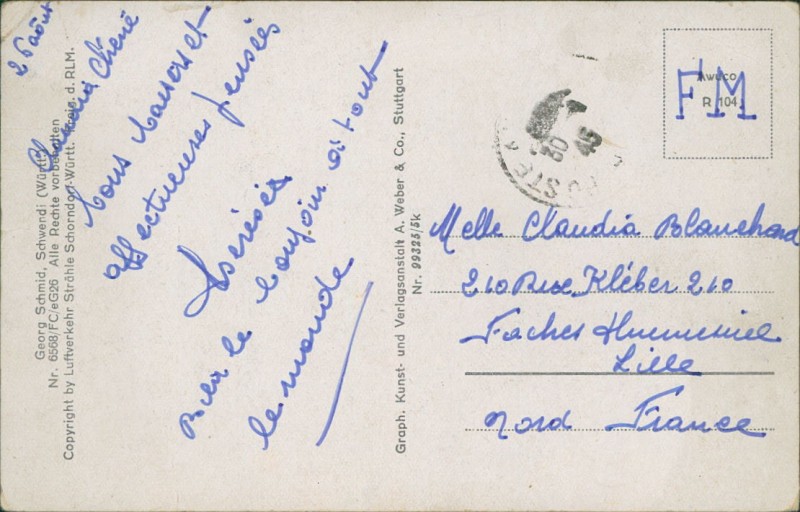 2 août
Claudia Chérie
Tous baisers et
affectueuses pensées
Bien le bonjour à tout
le monde
Georg Schmid, Schwendi (Württ.)
Nr. 6568/FC/eG26 Alle Rechte vorbehalten
Copyright by Luftverkehr Strähle Schorndorf-Württ. Freig. d. RLM.
Graph. Kunst- und Verlagsanstalt A. Weber & Co., Stuttgart
Nr. 99325/5k
POSTE
30
45
Awuco
R 104
FM
Melle Claudia Blanchard
210 Rue Kléber 210
Faches Thumesnil
Lille
Nord France